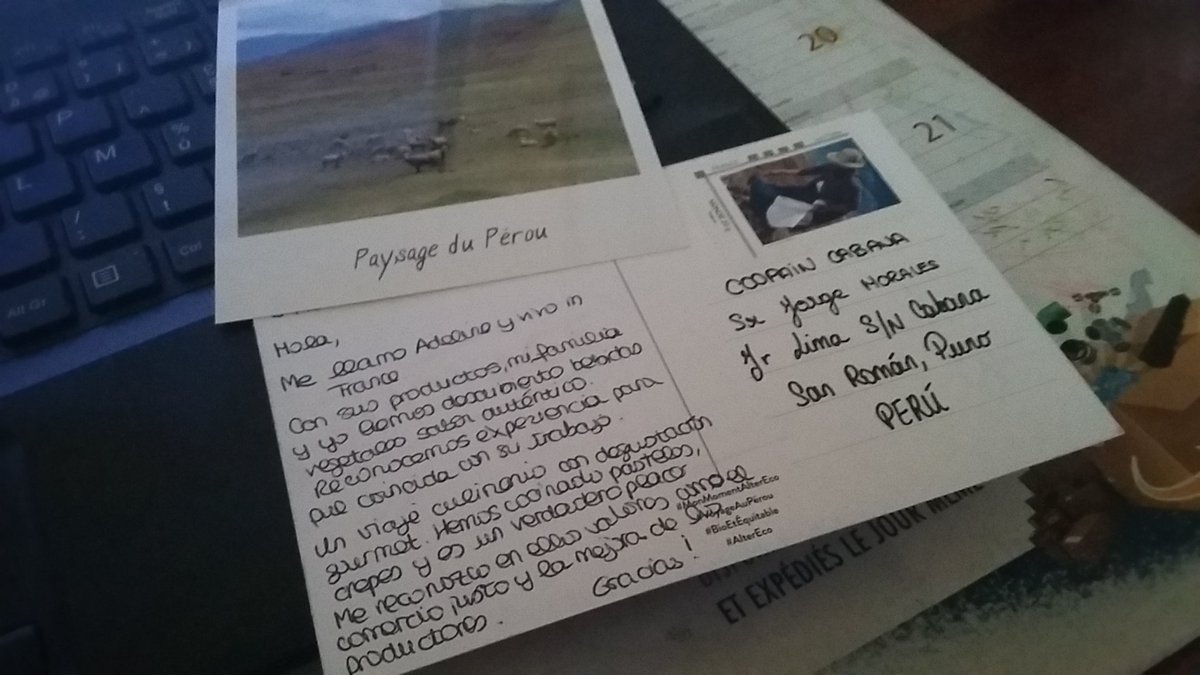 Paysage du Pérou
Hola,
Me llamo Adeline y vivo in
France
Con sus productos, mi familia
y yo hemos documento bebidas
vegetales sabor auténtico.
Reconocemos experiencia para
que coincida con su trabajo.
Un viaje culinario con degustación
gurmet. Hemos cocinado pasteles,
crepes y es un verdadero placer
Me reconozco en ellos valores
comercio justo y la mejora de sus
productores.
Gracias!
COOPAIN CABANA
Sr Jorge MORALES
Jr Lima S/N Cabana
San Román, Puno
PERÚ
#MonMomentAlterEco
#VoyageAuPérou
#BioEtEquitable
#AlterEco
20
21
ET EXPÉDIÉS LE JOUR MÊME
P
L
M
%
ù
/
:
!
§
Alt Gr